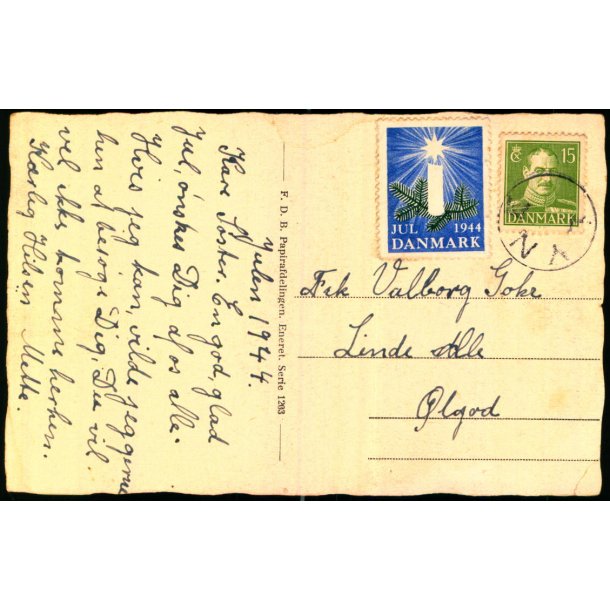 Julen 1944.
Kære Søster. En god, glad
Jul, ønskes Dig af os alle.
Hvis jeg kan, vilde jeg gerne
hen at besøge Dig, Du vil
vel ikke komme herhen.
Kærlig Hilsen Mette.
F. D. B. Papirafdelingen. Eneret. Serie 1203
JUL 1944
DANMARK
15
DANMARK
Frk Valborg Goke
Linde Alle
Ølgod